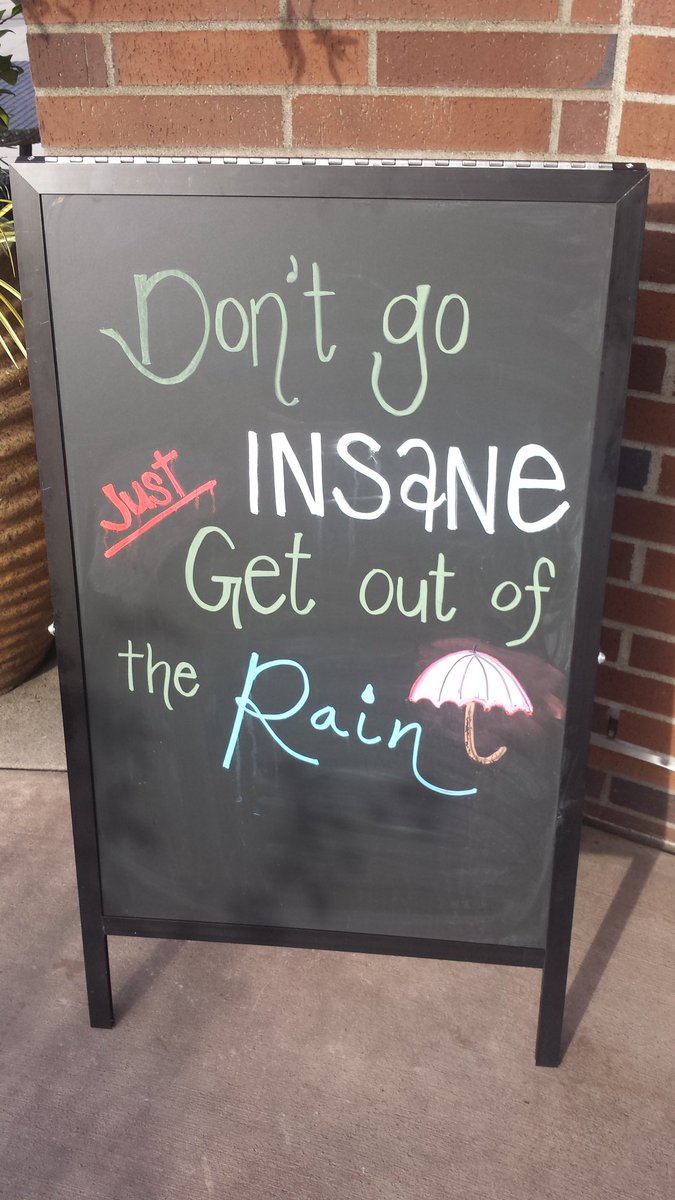 Don't go
INSaNe
Just
Get out of
the Rain